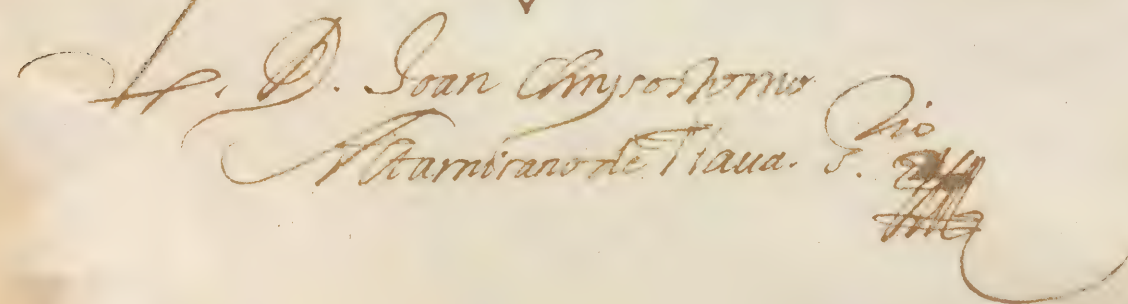 L. D. Joan Chrysostomo
Altamirano de Naua. S.